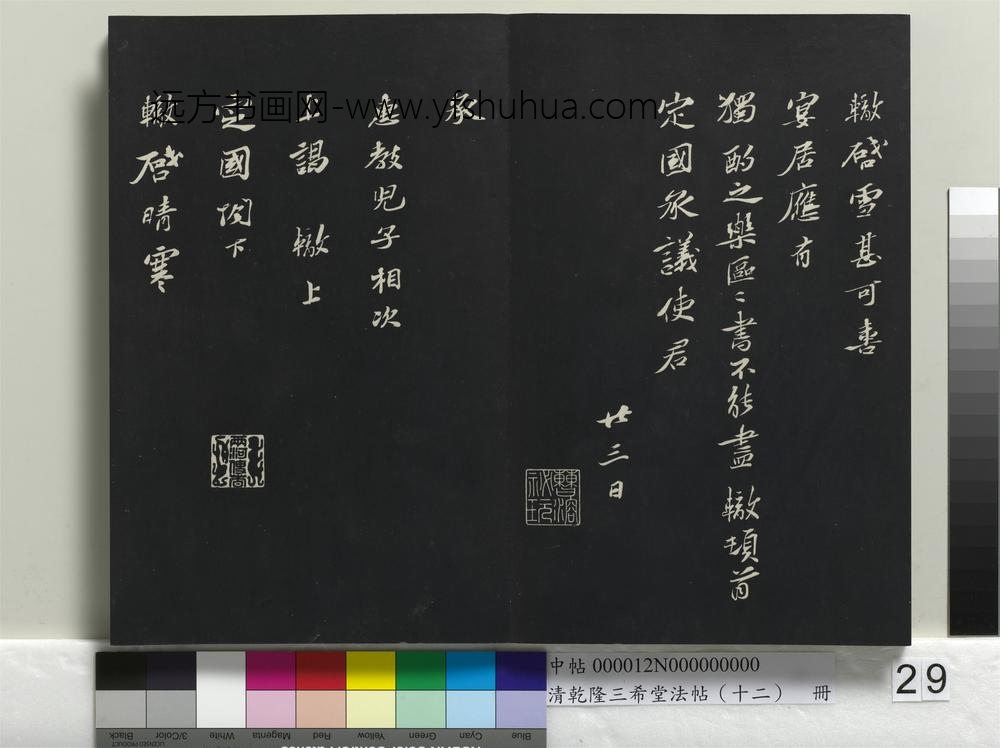 轍啓雪甚可喜
宴居應有
獨酌之樂區〻書不能盡 轍頓首
定國承議使君
廿三日
曹溶
祕玩
承
惠教兒子相次
上謁 轍上
定國閣下
轍啓晴寒
远方书画网-www.yfshuhua.com
中帖 000012N000000000
清乾隆三希堂法帖（十二） 冊
29
Black
3/Color
White
Magenta
Red
Yellow
Green
Cyan
Blue